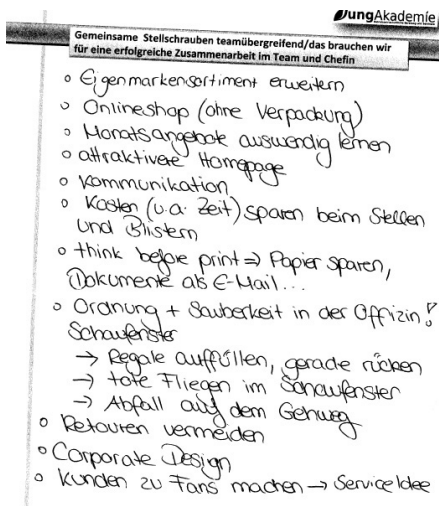 JungAkademie
Gemeinsame Stellschrauben teamübergreifend/das brauchen wir
für eine erfolgreiche Zusammenarbeit im Team und Chefin
o Eigenmarkensortiment erweitern
o Onlineshop (ohne Verpackung)
o Monatsangebote auswendig lernen
o attraktivere Homepage
o Kommunikation
o Kosten (u.a. Zeit) sparen beim Stellen
und Blistern
o think before print ⇒ Papier sparen,
Dokumente als E-Mail...
o Ordnung + Sauberkeit in der Offizin!
Schaufenster
→ Regale auffüllen, gerade rücken
→ tote Fliegen im Schaufenster
→ Abfall auf dem Gehweg
o Retouren vermeiden
o Corporate Design
o Kunden zu Fans machen → Service Idee